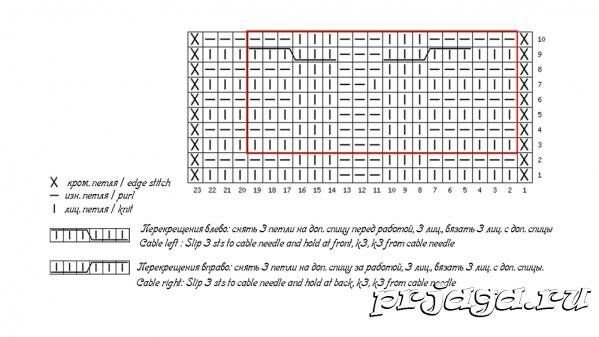 10
9
8
7
6
5
4
3
2
1
23 22 21 20 19 18 17 16 15 14 13 12 11 10 9 8 7 6 5 4 3 2 1
X кром. петля / edge stitch
— изн. петля / purl
I лиц. петля / knit
Перекрещения влево: снять 3 петли на доп. спицу перед работой, 3 лиц., вязать 3 лиц. с доп. спицы
Cable left : Slip 3 sts to cable needle and hold at front, k3, k3 from cable needle
Перекрещения вправо: снять 3 петли на доп. спицу за работой, 3 лиц., вязать 3 лиц. с доп. спицы.
Cable right: Slip 3 sts to cable needle and hold at back, k3, k3 from cable needle
prjaga.ru